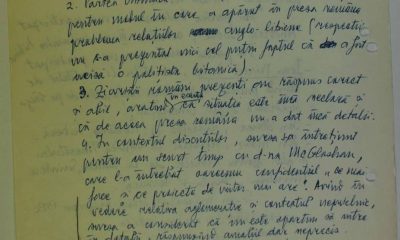 2. Partea
pentru modul în care a apărut în presa română
problema relațiilor anglo-libiene (respectiv
nu s-a prezentat nici cel puțin faptul că a fost
ucisă o polițistă britanică).
3. Ziariștii români prezenți au răspuns corect
și abil, arătând că situația este încă neclară și
că de aceea presa română nu a dat încă detalii.
4. În contextul discuțiilor, sursa s-a întreținut
pentru un scurt timp cu d-na McGlashan,
care l-a întrebat oarecum confidențial "ce mai
face și ce proiecte de viitor mai are". Având în
vedere relativa aglomerație și contextul nepotrivit,
sursa a considerat că nu este oportun să intre
în detalii, răspunzând amabil dar neprecis.